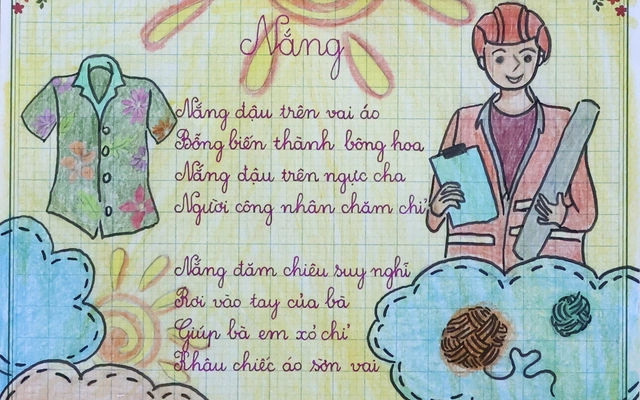 Nắng
Nắng đậu trên vai áo
Bỗng biến thành bông hoa
Nắng đậu trên ngực cha
Người công nhân chăm chỉ
Nắng đăm chiêu suy nghĩ
Rơi vào tay của bà
Giúp bà em xỏ chỉ
Khâu chiếc áo sờn vai